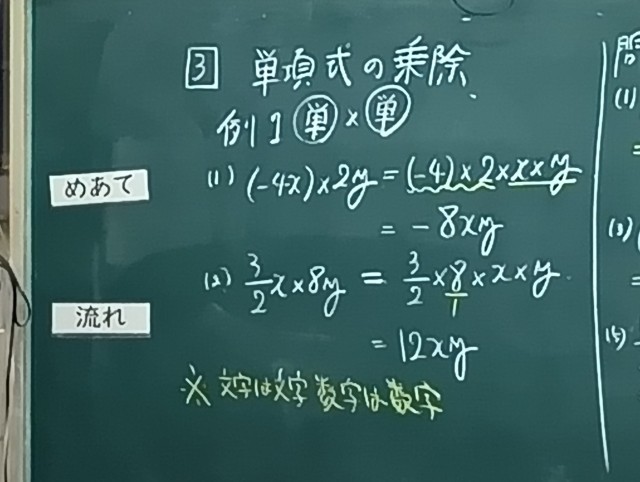 3 単項式の乗除
例1 単×単
めあて
(1) (-4x)×2y = (-4)×2×x×y
= -8xy
(2) 3/2 x×8y = 3/2 × 8/1 × x × y
流れ
= 12xy
※ 文字は文字 数字は数字
問
(1)
=
(3)
=
(5)